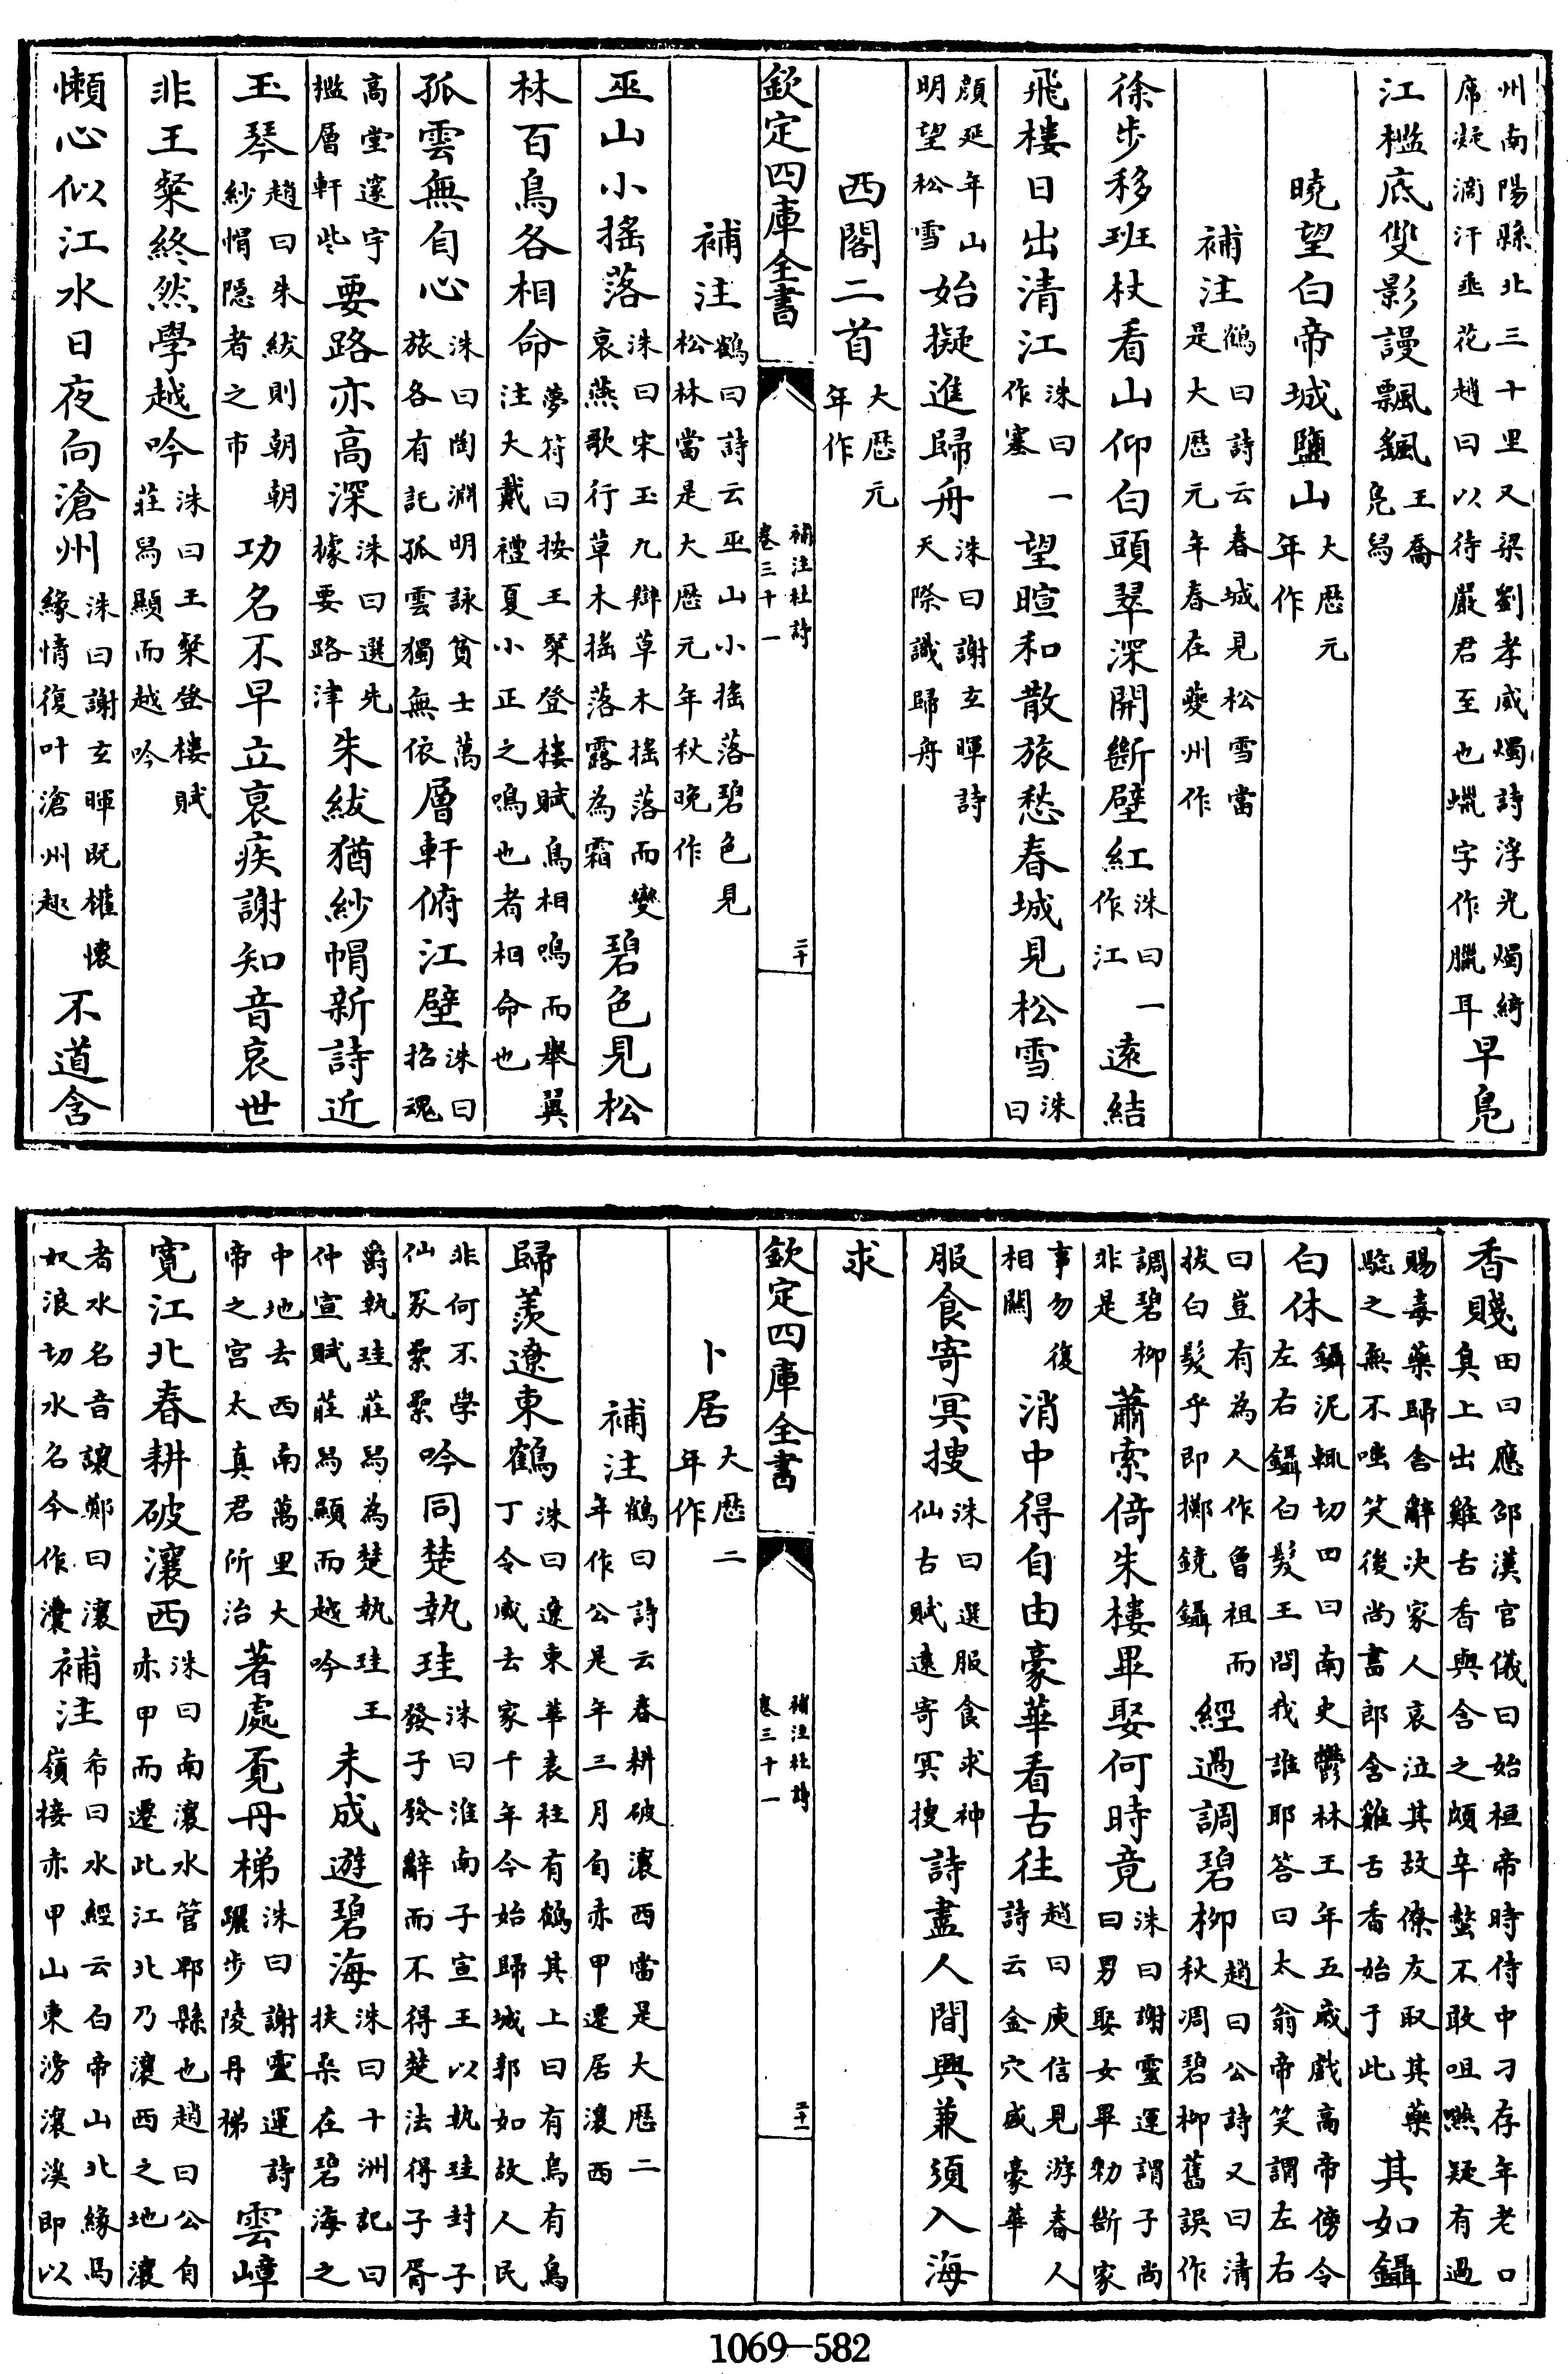 州南陽縣北三十里又梁劉孝威燭詩浮光燭綺席凝滴汗垂花趙曰以待嚴君至也蠟字作臘耳早鳬
江檻底雙影謾飄颻王喬鳬舄
曉望白帝城鹽山大厯元年作
補注鶴曰詩云春城見松雪當是大厯元年春在夔州作
徐步移班杖看山仰白頭翠深開斷壁紅洙曰一作江遠結
飛樓日出清江洙曰一作塞望暄和散旅愁春城見松雪洙曰
顔延年山明望松雪始擬進歸舟洙曰謝玄暉詩天際識歸舟
西閣二首大厯元年作
欽定四庫全書 補注杜詩卷三十一 二十
補注鶴曰詩云巫山小搖落碧色見松林當是大厯元年秋晚作
巫山小搖落洙曰宋玉九辯草木搖落而變哀燕歌行草木搖落露為霜碧色見松
林百鳥各相命夢符曰按王粲登樓賦鳥相鳴而舉翼注大戴禮夏小正之鳴也者相命也
孤雲無自心洙曰陶淵明詠貧士萬旅各有託孤雲獨無依層軒俯江壁洙曰招魂
高堂邃宇檻層軒些要路亦高深洙曰選先據要路津朱紱猶紗帽新詩近
玉琴趙曰朱紱則朝朝紗帽隠者之巿功名不早立衰疾謝知音哀世
非王粲終然學越吟洙曰王粲登樓賦莊舄顯而越吟
懶心似江水日夜向滄州洙曰謝玄暉既懽懷緣情復叶滄州趣不道含
香賤田曰應邵漢官儀曰始桓帝時侍中刁存年老口臭上出雞舌香與含之頗辛螫不敢咀嚥疑有過
賜毒藥歸舍辭决家人哀泣其故僚友取其藥騐之無不嗤笑後尚書郎含雞舌香始于此其如鑷
白休鑷泥輒切田曰南史鬱林王年五歲戲高帝傍令左右鑷白髮王問我誰耶答曰太翁帝笑謂左右
曰豈有為人作曾祖而拔白髮乎即擲鏡鑷經過調碧柳趙曰公詩又曰清秋凋碧柳舊誤作
調碧柳非是蕭索倚朱樓畢娶何時竟洙曰謝靈運謂子尚曰男娶女畢勑斷家
事勿復相關消中得自由豪華看古往趙曰庾信見游春人詩云金穴盛豪華
服食寄冥搜洙曰選服食求神仙古賦遠寄冥搜詩盡人間興兼須入海
求
欽定四庫全書 補注杜詩卷三十一 二十一
卜居大厯二年作
補注鶴曰詩云春耕破瀼西當是大厯二年作公是年三月自赤甲遷居瀼西
歸羨遼東鶴洙曰遼東華表柱有鶴其上曰有鳥有鳥丁令威去家千年今始歸城郭如故人民
非何不學仙冢纍纍吟同楚執珪洙曰淮南子宣王以執珪封子發子發辭而不得楚法得子胥
爵執珪莊舄為楚執珪王仲宣賦莊舄顯而越吟未成遊碧海洙曰十洲記曰扶桑在碧海之
中地去西南萬里大帝之宮太真君所治著處覓丹梯洙曰謝靈運詩躧步陵丹梯雲嶂
寛江北春耕破瀼西洙曰南瀼水管郫縣也趙曰公自赤甲而遷此江北乃瀼西之地瀼
者水名音讓鄭曰瀼奴浪切水名今作灢補注希曰水經云白帝山北緣馬嶺接赤甲山東滂瀼溪即以
1069—582